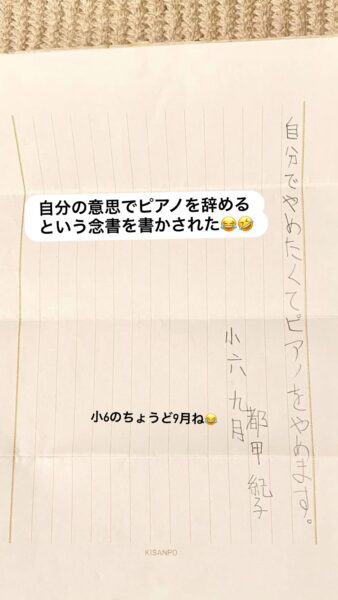 自分でやめたくてピアノをやめます。
小六 九月
都甲 紀子
自分の意思でピアノを辞める
という念書を書かされた😂🤣
小6のちょうど9月ね😂
KISANPO